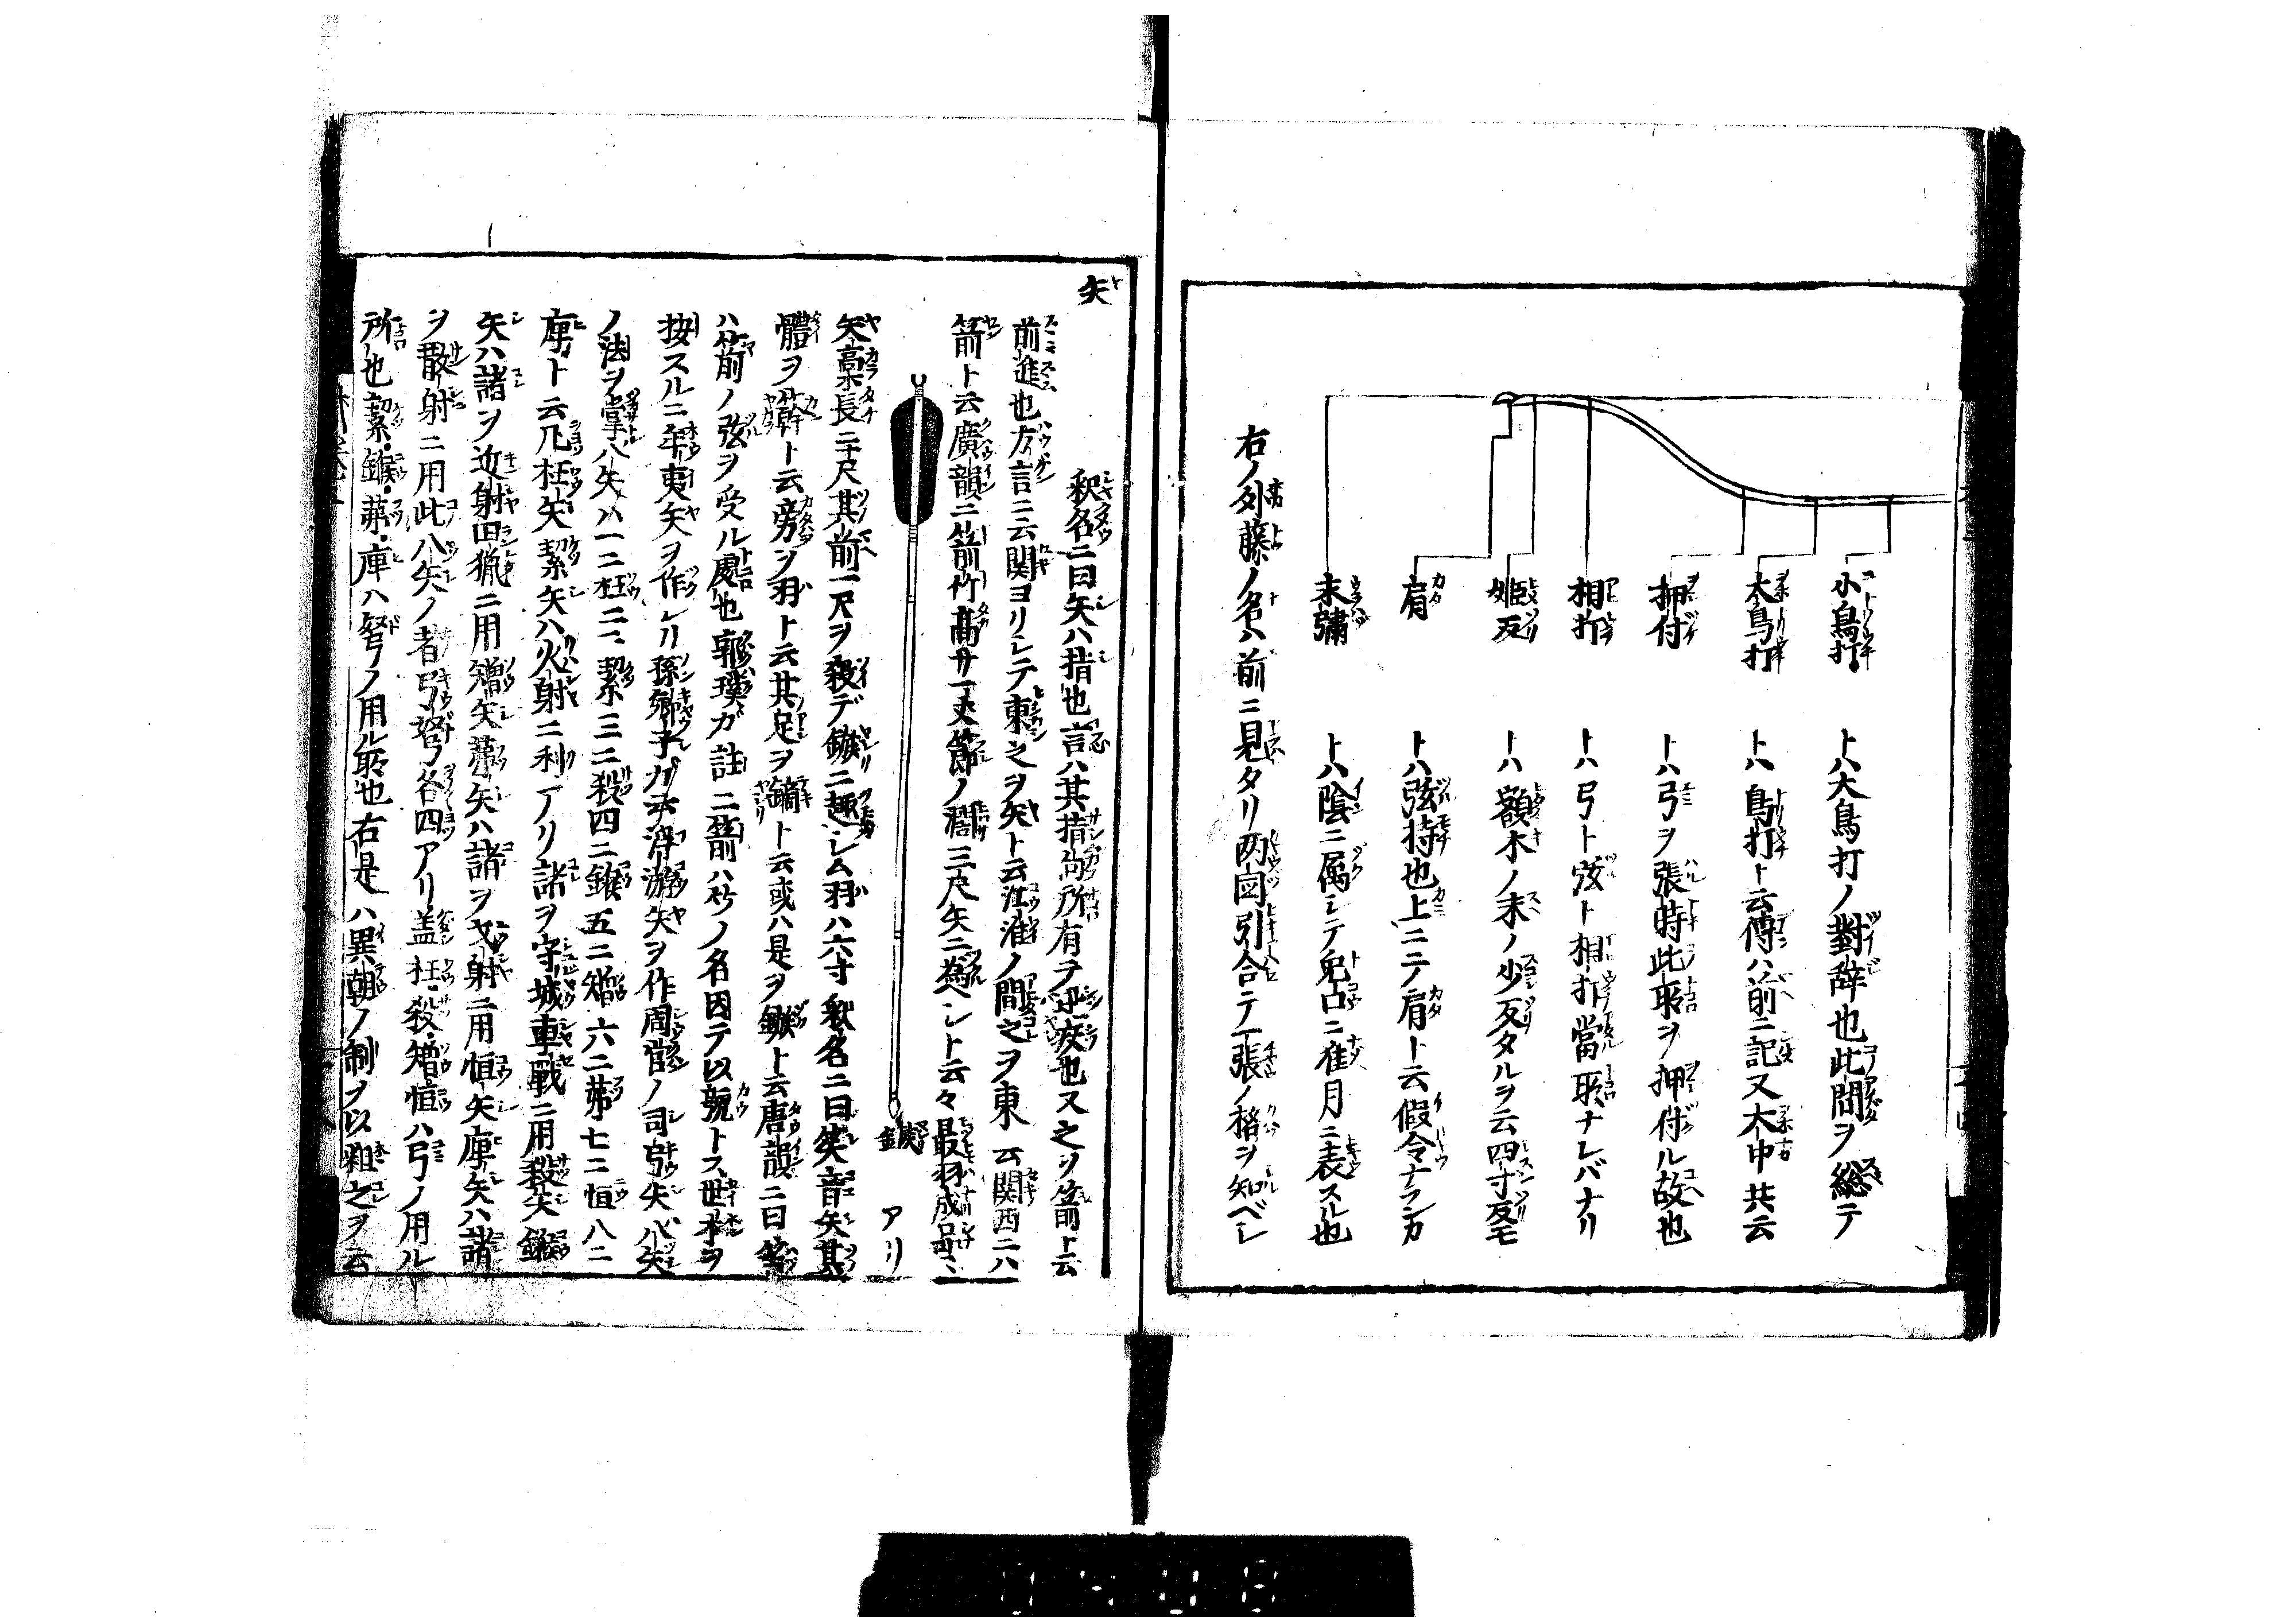 小鳥打 トハ大鳥打ノ對辞也此間ヲ総テ
大鳥打 トハ鳥打ト云傳ハ前ニ記又大中共云
押付 トハ弓ヲ張時此所ヲ押付ル故也
相打 トハ弓ト弦ト相打當所ナレバナリ
姫反 トハ額木ノ末ノ少反タルヲ云四寸反モ
肩 トハ弦持也上ニ二ノ肩ト云假令ナランカ
末弭 トハ陰ニ属シテ鬼口ニ隹月ニ表スル也
右ノ列藤ノ名ハ前ニ見タリ両図引合テ一張ノ格ヲ知ベシ
矢
釈名ニ曰矢ハ指也言ハ其指向所有テ迅疾也又之ヲ箭ト云
前進也方言ニ云関ヨリシテ東之ヲ矢ト云江淮ノ間之ヲ東 云関西ニハ
箭ト云廣韻ニ箭竹高サ一丈節ノ間三尺矢ニ為ベシト云々最羽成
鏃 アリ
矢藁長三尺其前一尺ヲ殺デ鏃ニ趣シム羽ハ六寸釈名ニ曰筈音矢其
體ヲ幹ト云旁ヲ羽ト云其足ヲ鏑ト云或ハ是ヲ鏃ト云唐韻ニ曰筈
ハ箭ノ弦ヲ受ル處也郭璞ガ註ニ箭ハ竹ノ名因テ以號トス世本ヲ
按スルニ牟夷矢ヲ作レリ孫卿子ガ云浮游矢ヲ作周官ノ司弓矢八矢
ノ法ヲ掌八矢ハ一ニ枉二ニ絜三ニ殺四ニ鍭五ニ矰六ニ茀七ニ恒八ニ
庳ト云凡枉矢絜矢ハ火射ニ利アリ諸ヲ守城車戰ニ用殺矢鍭
矢ハ諸ヲ近射田猟ニ用矰矢茀矢ハ諸ヲ弋射ニ用恒矢庳矢ハ諸
ヲ散射ニ用此八矢ノ者弓弩ノ各四アリ盖枉殺矰恒ハ弓ノ用ル
所也絜鍭茀庳ハ弩ノ用ル所也右是ハ異朝ノ制ヲ以粗之ヲ云